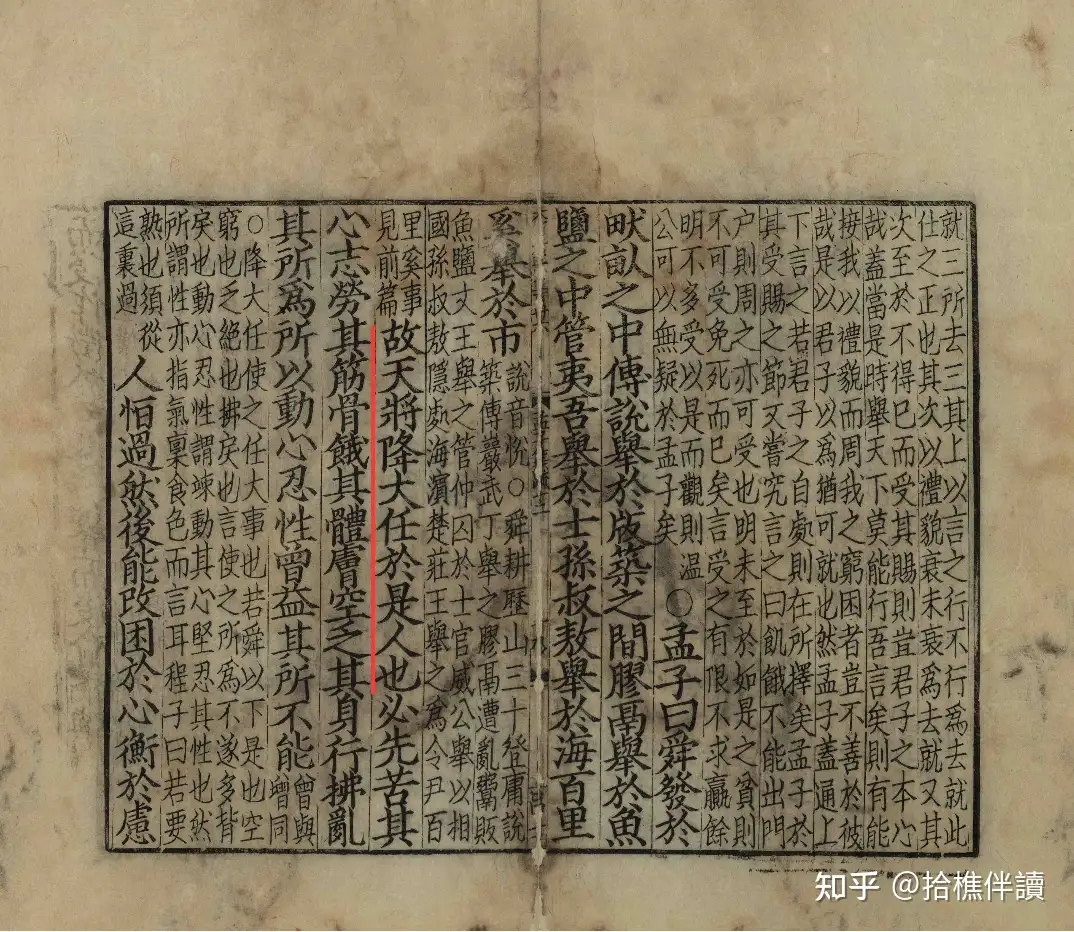 就三所去三其上以言之行不行為去就此
仕之正也其次以禮貌衰未衰為去就又其
次至於不得已而受其賜則豈君子之本心
哉蓋當是時舉天下莫能行吾言矣則有能
接我以禮貌而周我之窮困者豈不善於彼
哉是以君子以為猶可就也然孟子蓋通上
下言之若君子之自處則在所擇矣孟子於
其受賜之節又嘗究言之曰飢餓不能出門
户則周之亦可受也明未至於如是之貧則
不可受免死而已矣言受之有限不求贏餘
明不多受以是而觀則温
公可以無疑於孟子矣
○孟子曰舜發於
畎畝之中傅說舉於版築之間膠鬲舉於魚
鹽之中管夷吾舉於士孫叔敖舉於海百里
奚舉於市
說音悅○舜耕歷山三十登庸說
築傅巖武丁舉之膠鬲遭亂鬻販
魚鹽文王舉之管仲囚於士官威公舉以相
國孫叔敖隱處海濱楚莊王舉之為令尹百
里奚事
見前篇
故天將降大任於是人也必先苦其
心志勞其筋骨餓其體膚空乏其身行拂亂
其所為所以動心忍性曾益其所不能
曾與
增同
○降大任使之任大事也若舜以下是也空
窮也乏絕也拂戾也言使之所為不遂多背
戾也動心忍性謂竦動其心堅忍其性也然
所謂性亦指氣稟食色而言耳程子曰若要
熟也須從
這裏過
人恒過然後能改困於心衡於慮
知乎 @拾樵伴讀